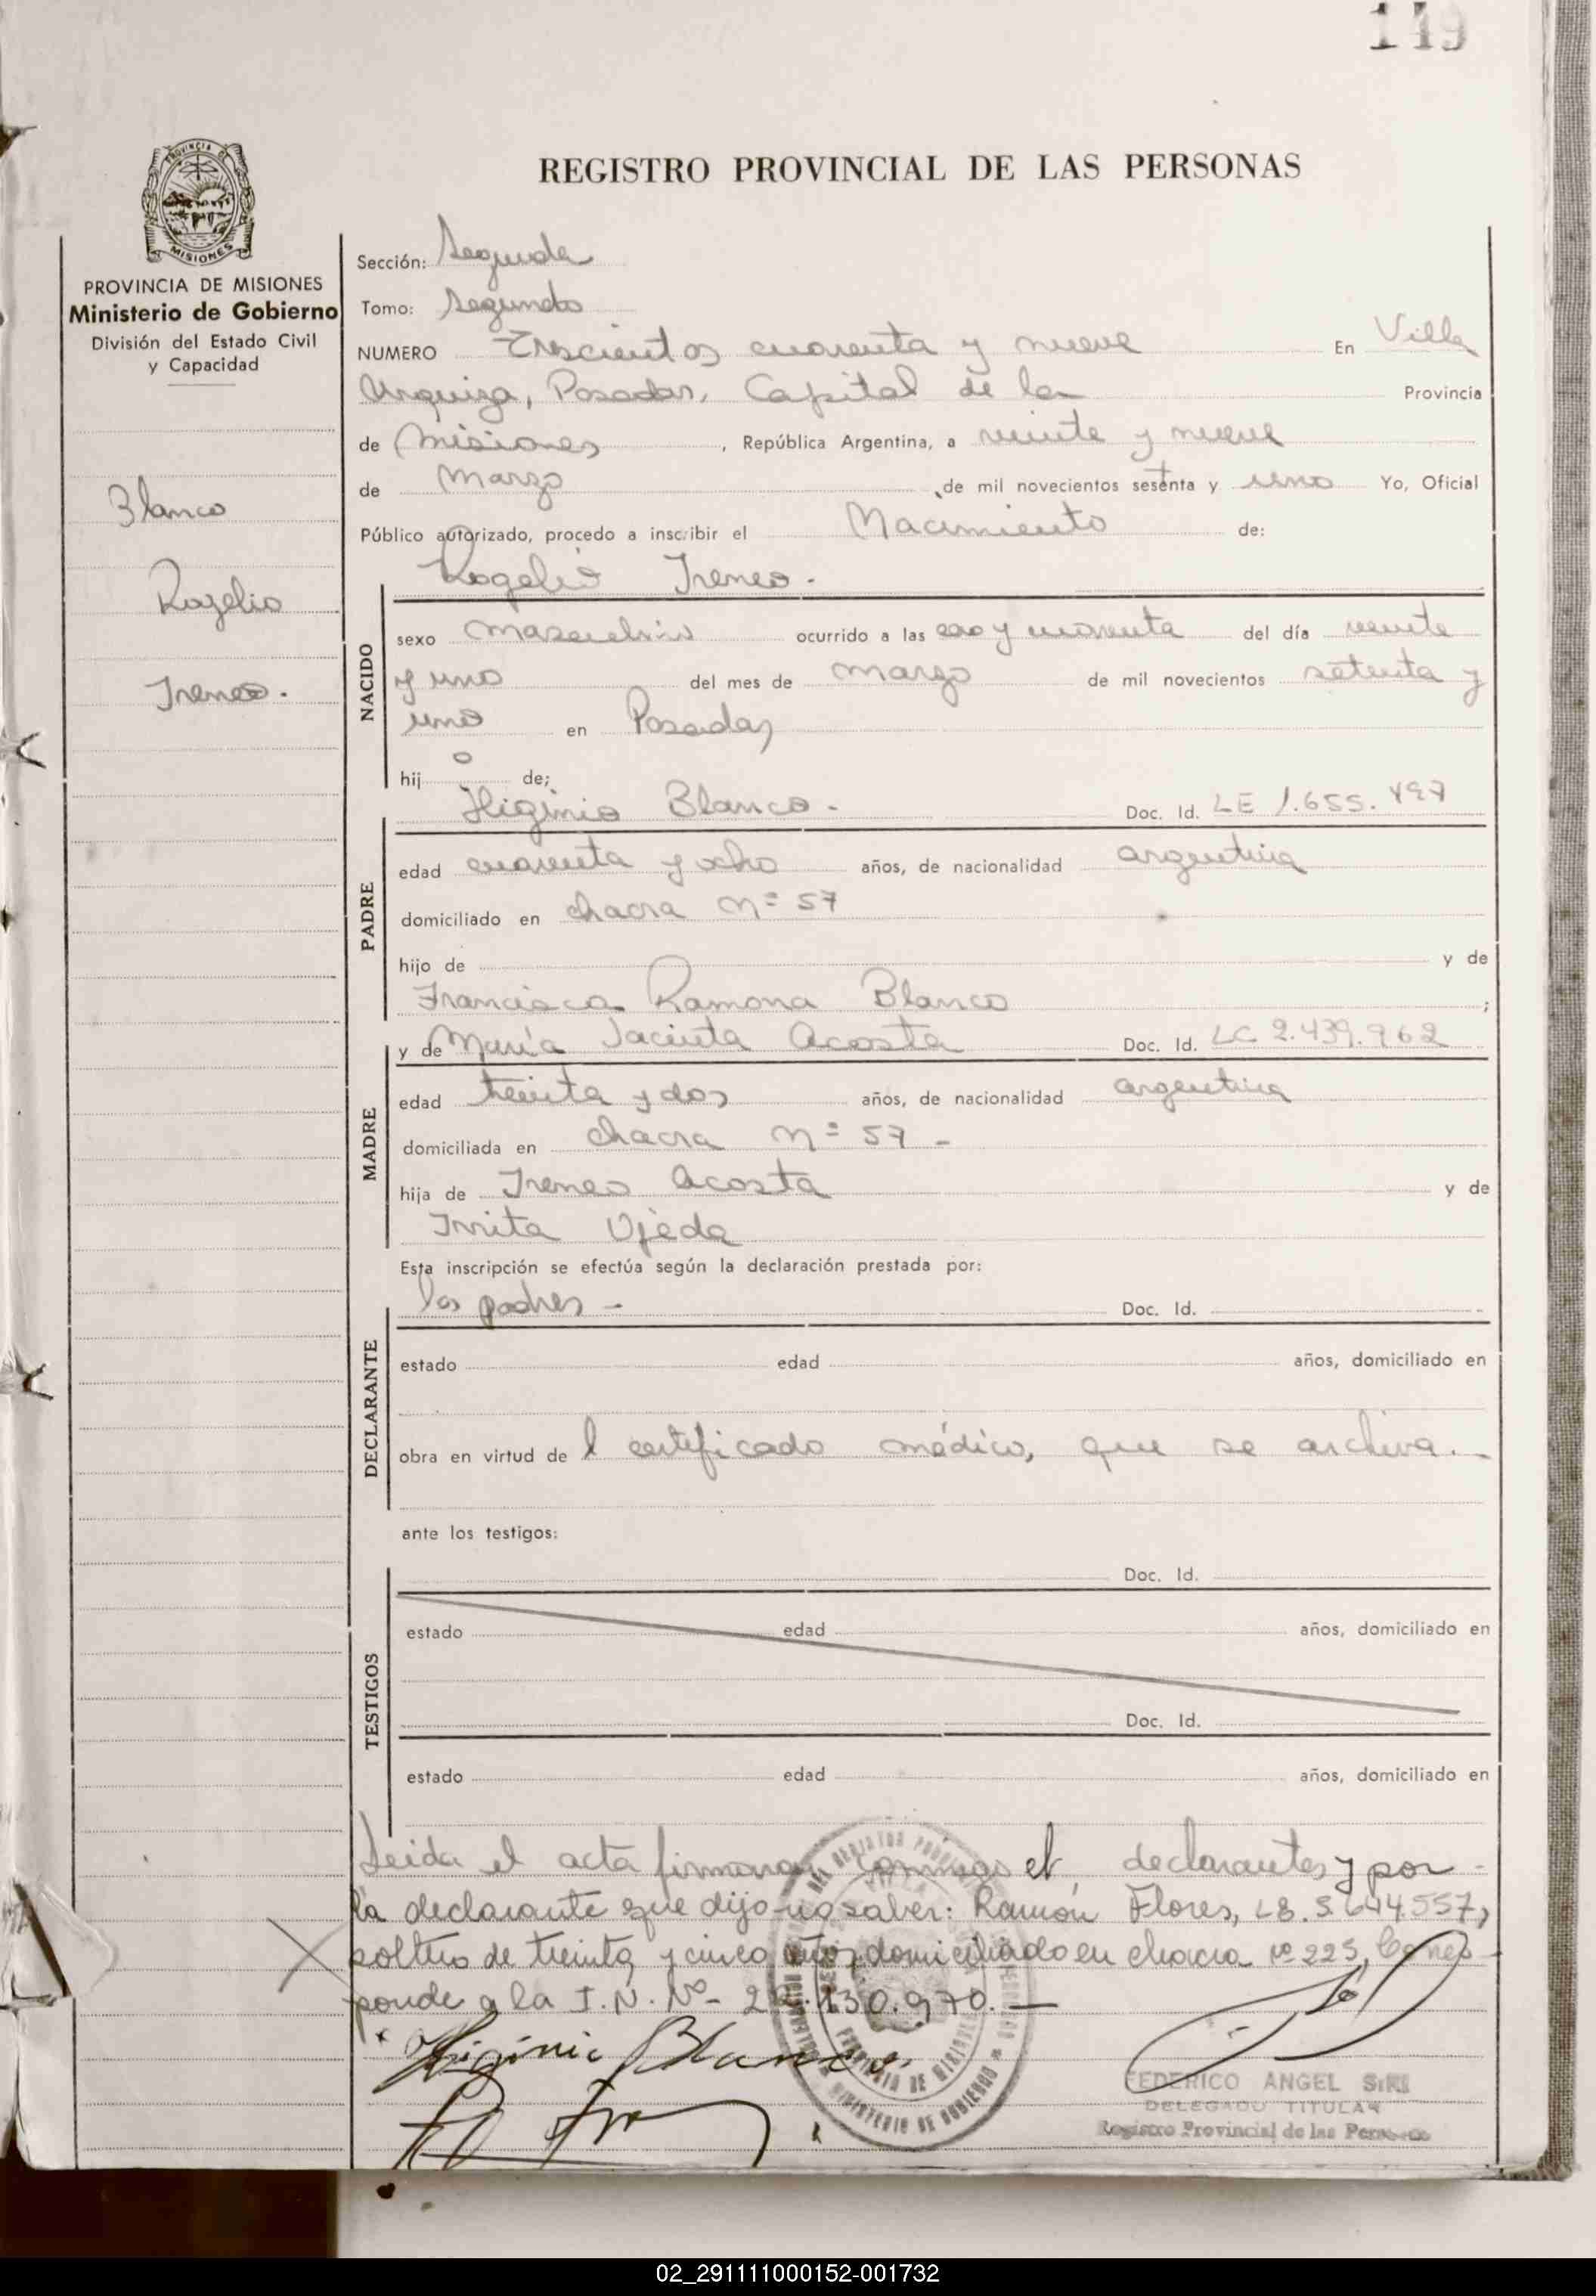 149
REGISTRO PROVINCIAL DE LAS PERSONAS
PROVINCIA DE MISIONES
Ministerio de Gobierno
División del Estado Civil
y Capacidad
Blanco
Rogelio
Ireneo.
Sección: Segunda
Tomo: Segundo
NUMERO Trescientos cuarenta y nueve En Villa
Urquiza, Posadas, Capital de la Provincia
de Misiones, República Argentina, a veinte y nueve
de Marzo de mil novecientos sesenta y uno Yo, Oficial
Público autorizado, procedo a inscribir el Nacimiento de:
Rogelio Ireneo.
NACIDO
sexo masculino ocurrido a las y cuarenta del día veinte
y uno del mes de marzo de mil novecientos setenta y
uno en Posadas
hijo de;
Higinio Blanco. Doc. Id. LE 1.655.497
PADRE
edad cuarenta y ocho años, de nacionalidad argentina
domiciliado en chacra Nº 57
hijo de y de
Francisca Ramona Blanco ;
y de María Jacinta Acosta Doc. Id. LC 2.439.962
MADRE
edad treinta y dos años, de nacionalidad argentina
domiciliada en chacra Nº 57 -
hija de Ireneo Acosta y de
Ojeda
Esta inscripción se efectúa según la declaración prestada por:
los padres - Doc. Id.
DECLARANTE
estado edad años, domiciliado en
obra en virtud de l certificado médico, que se archiva.-
ante los testigos:
Doc. Id.
TESTIGOS
estado edad años, domiciliado en
Doc. Id.
estado edad años, domiciliado en
Leida el acta firmaron conmigo el declarantes y por
la declarante que dijo no saber: Ramón Flores, 5.644.557,
soltero de treinta y cinco años, domiciliado en chacra nº 225, Corres-
ponde a la I.N. Nº- 130.970. —
Higinio Blanco.
FEDERICO ANGEL SIRI
DELEGADO TITULAR
Registro Provincial de las Personas
PROVINCIA DE MISIONES
MINISTERIO DE GOBIERNO
02_291111000152-001732